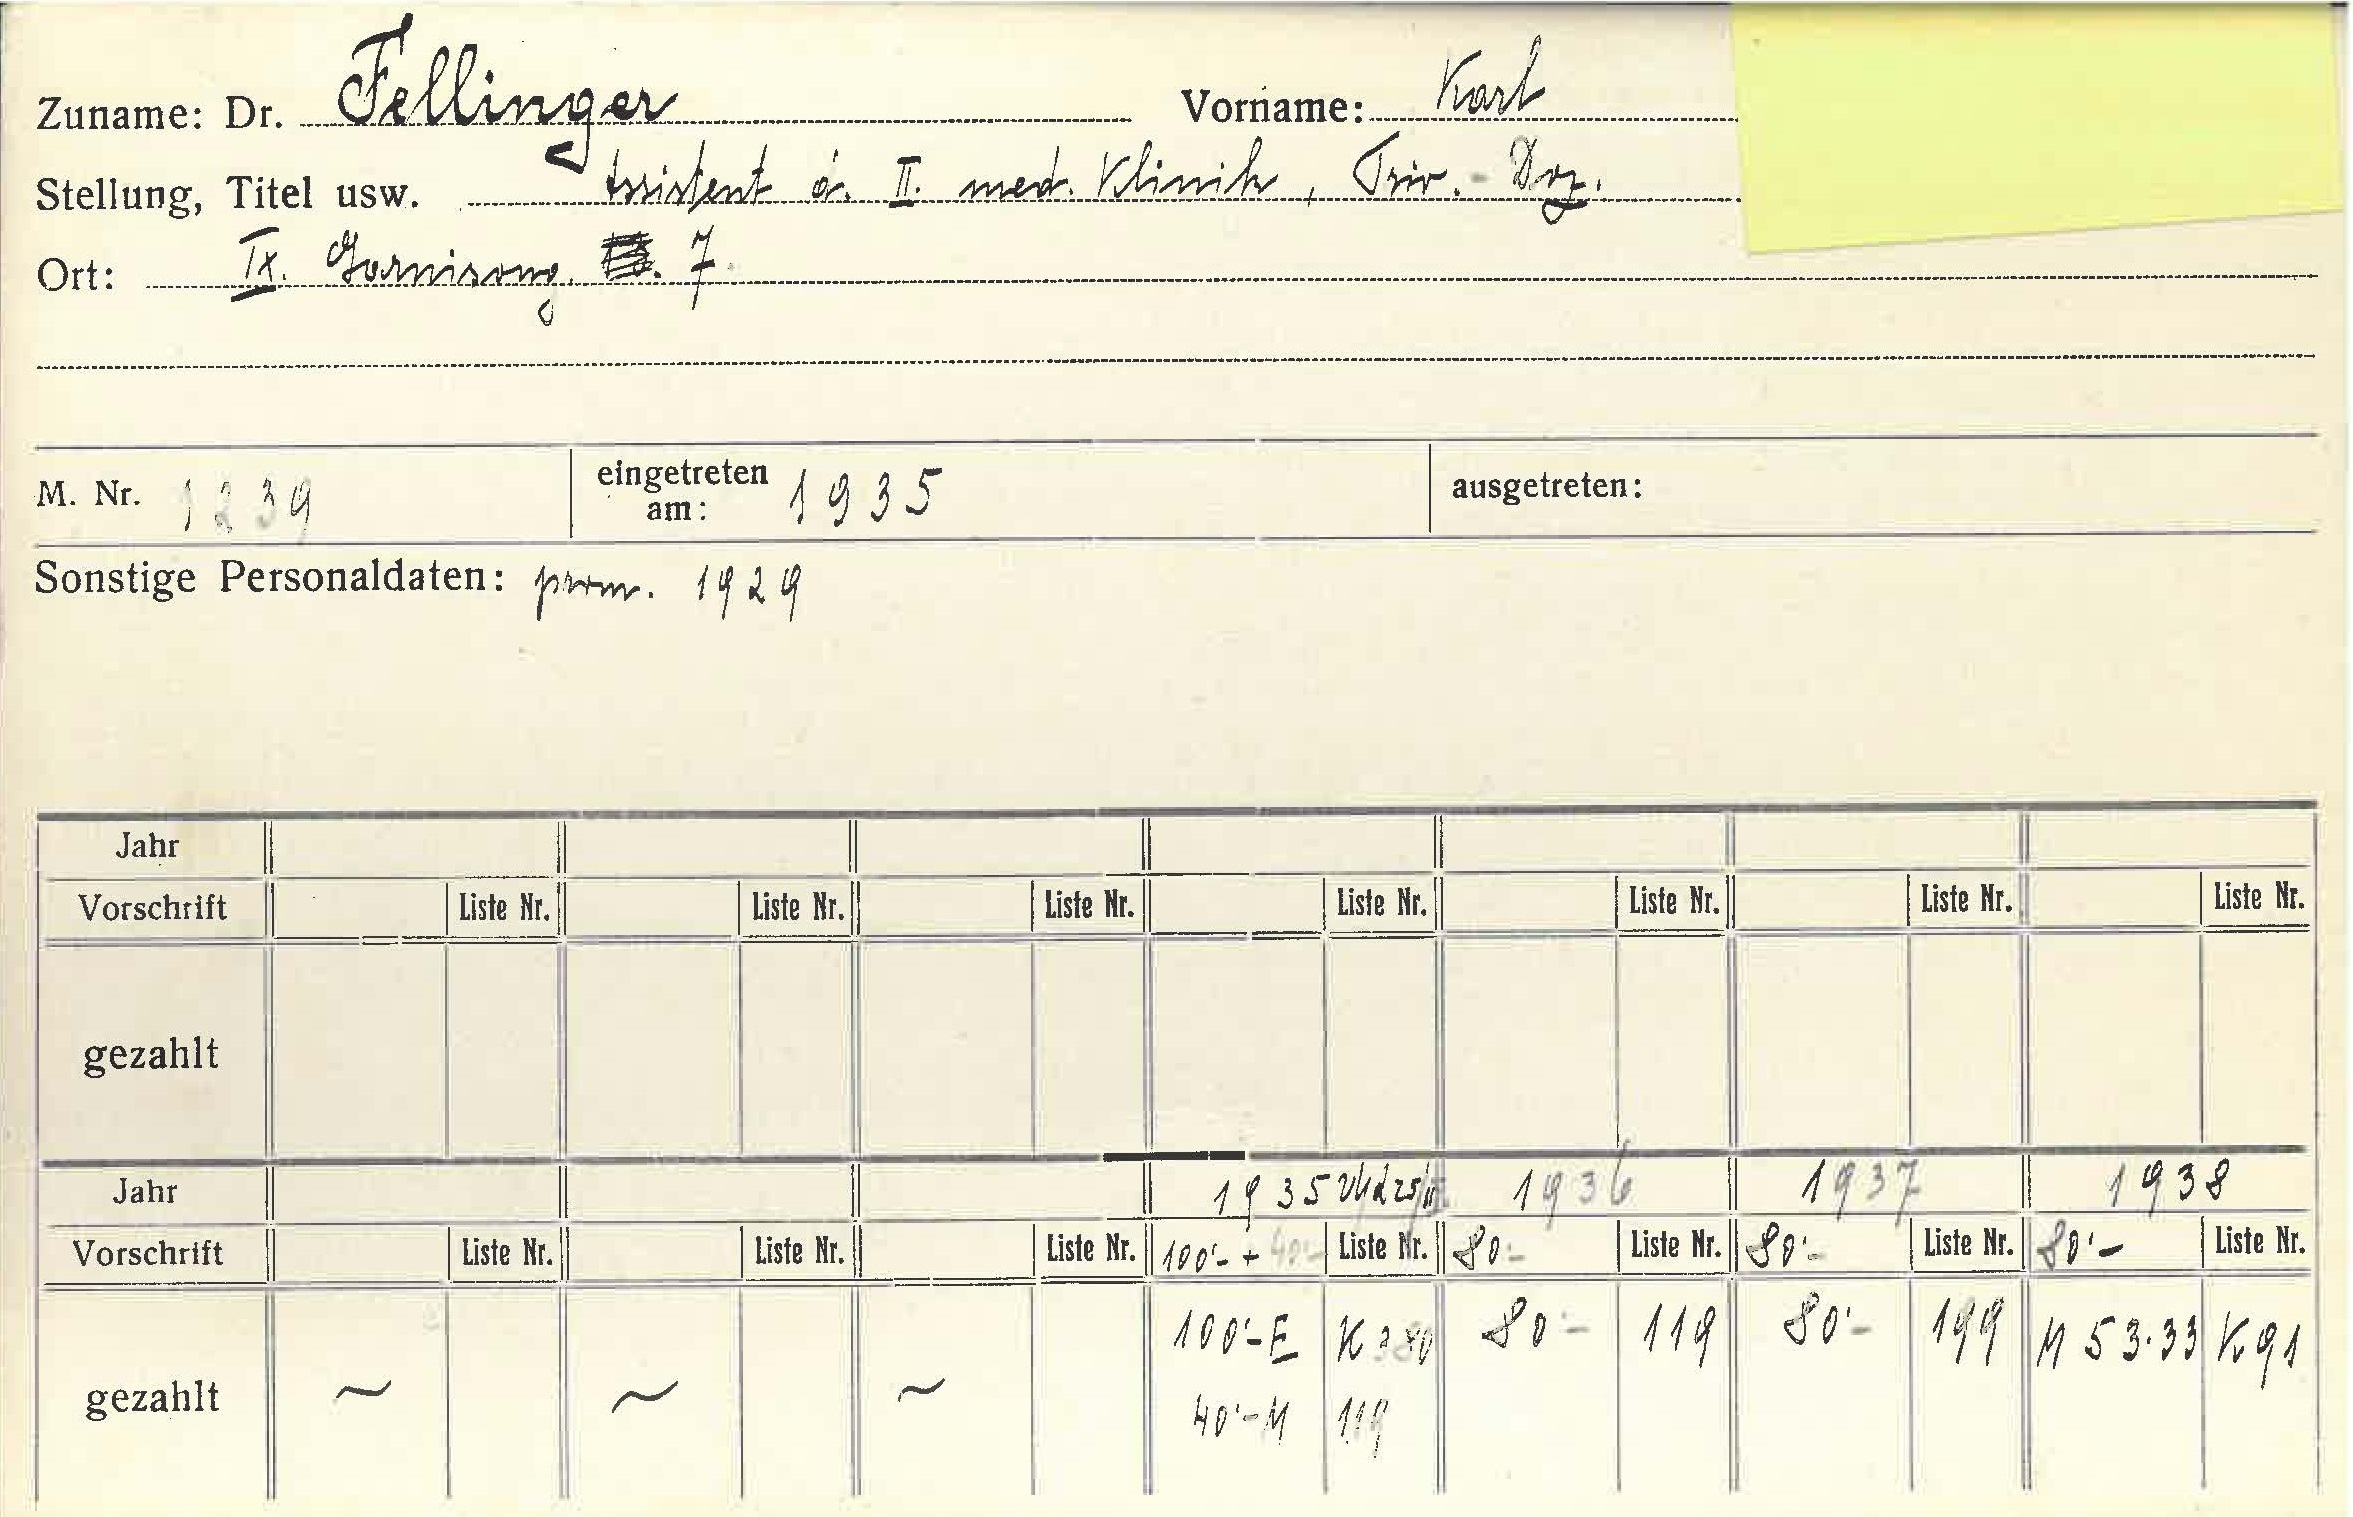 Zuname: Dr. Fellinger Vorname: Karl
Stellung, Titel usw. Assistent a. II. med. Klinik, Priv.-Doz.
Ort: IX. Garnisong. 7
M. Nr. 1239 eingetreten am: 1935 ausgetreten:
Sonstige Personaldaten: prom. 1929
Jahr
Vorschrift Liste Nr. Liste Nr. Liste Nr. Liste Nr. Liste Nr. Liste Nr. Liste Nr.
gezahlt
Jahr 1935 1936 1937 1938
Vorschrift Liste Nr. Liste Nr. Liste Nr. 100'- + 40'- Liste Nr. 80'- Liste Nr. 80'- Liste Nr. 80'- Liste Nr.
gezahlt ~ ~ ~ 100'- E 80'- 119 80'- 199 M 53.33 K 91
40'- M 119